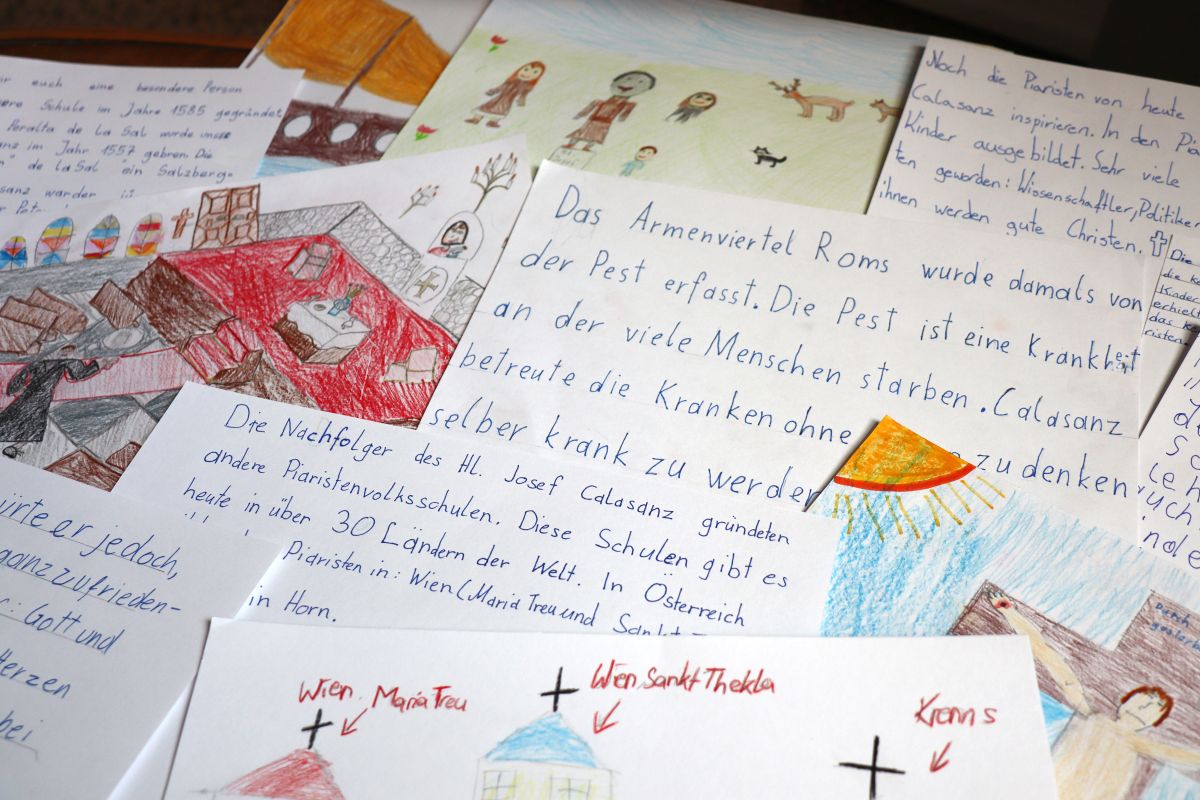 euch eine besondere Person
Schule im Jahre 1585 gegründet
Peralta de la Sal wurde unsere
im Jahr 1557 gebren. Die
de la Sal "ein Salzberg-
war der
Noch die Piaristen von heute
Calasanz inspirieren. In den
Kinder ausgebildet. Sehr viele
ten geworden: Wissenschaftler, Politiker
ihnen werden gute Christen.
Die
die
Kinder
erhielt
das
Das Armenviertel Roms wurde damals von
der Pest erfasst. Die Pest ist eine Krankheit
an der viele Menschen starben. Calasanz
betreute die Kranken ohne zu denken
selber krank zu werden
Die Nachfolger des Hl. Josef Calasanz gründeten
andere Piaristenvolksschulen. Diese Schulen gibt es
heute in über 30 Ländern der Welt. In Österreich
Piaristen in: Wien (Maria Treu und Sankt
in Horn.
er jedoch,
ganz zufrieden-
Gott und
Herzen
bei
Durch
Wien Maria Treu
Wien Sankt Thekla
Krems